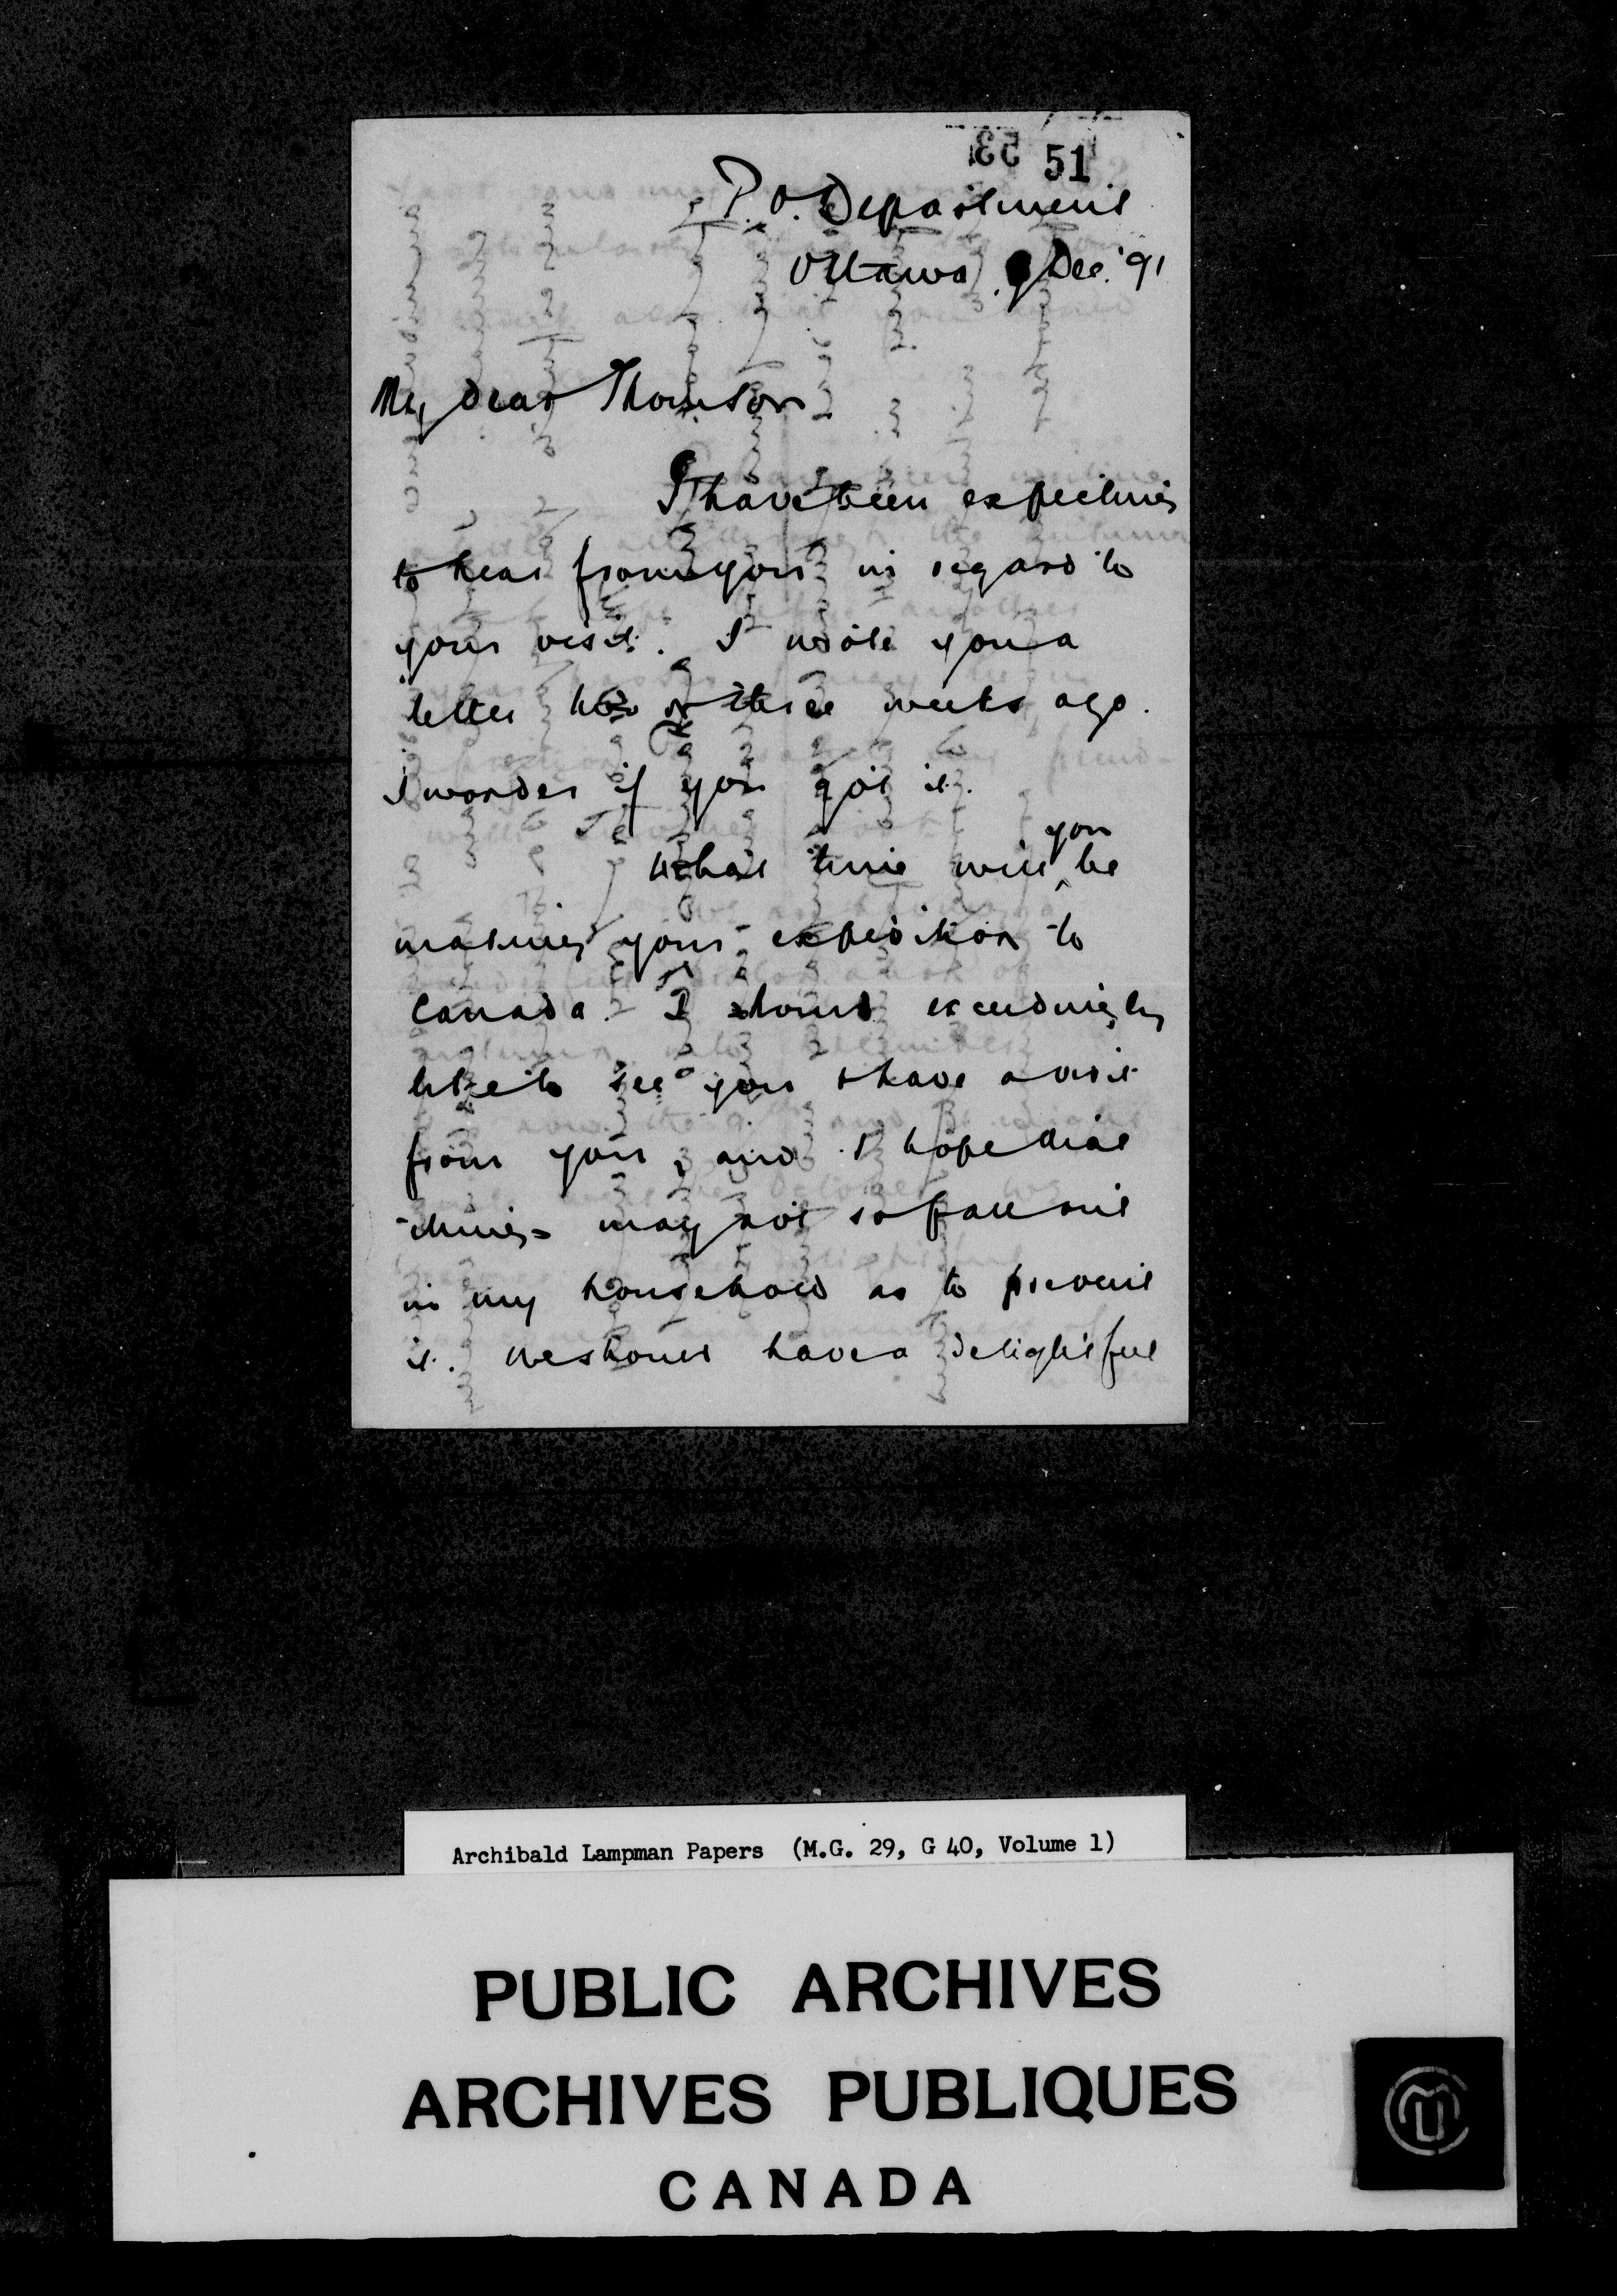 53 51
P.O. Department
Ottawa 9 Dec. '91
My dear Thomson
I have been expecting
to hear from you in regard to
your visit. I wrote you a
letter two or three weeks ago.
I wonder if you got it.
What time will you be
making your expedition to
Canada. I should exceedingly
like to see you & have a visit
from you, and I hope that
things may not so fall out
in my household as to prevent
it. We should have a delightful
Archibald Lampman Papers (M.G. 29, G 40, Volume 1)
PUBLIC ARCHIVES
ARCHIVES PUBLIQUES
CANADA